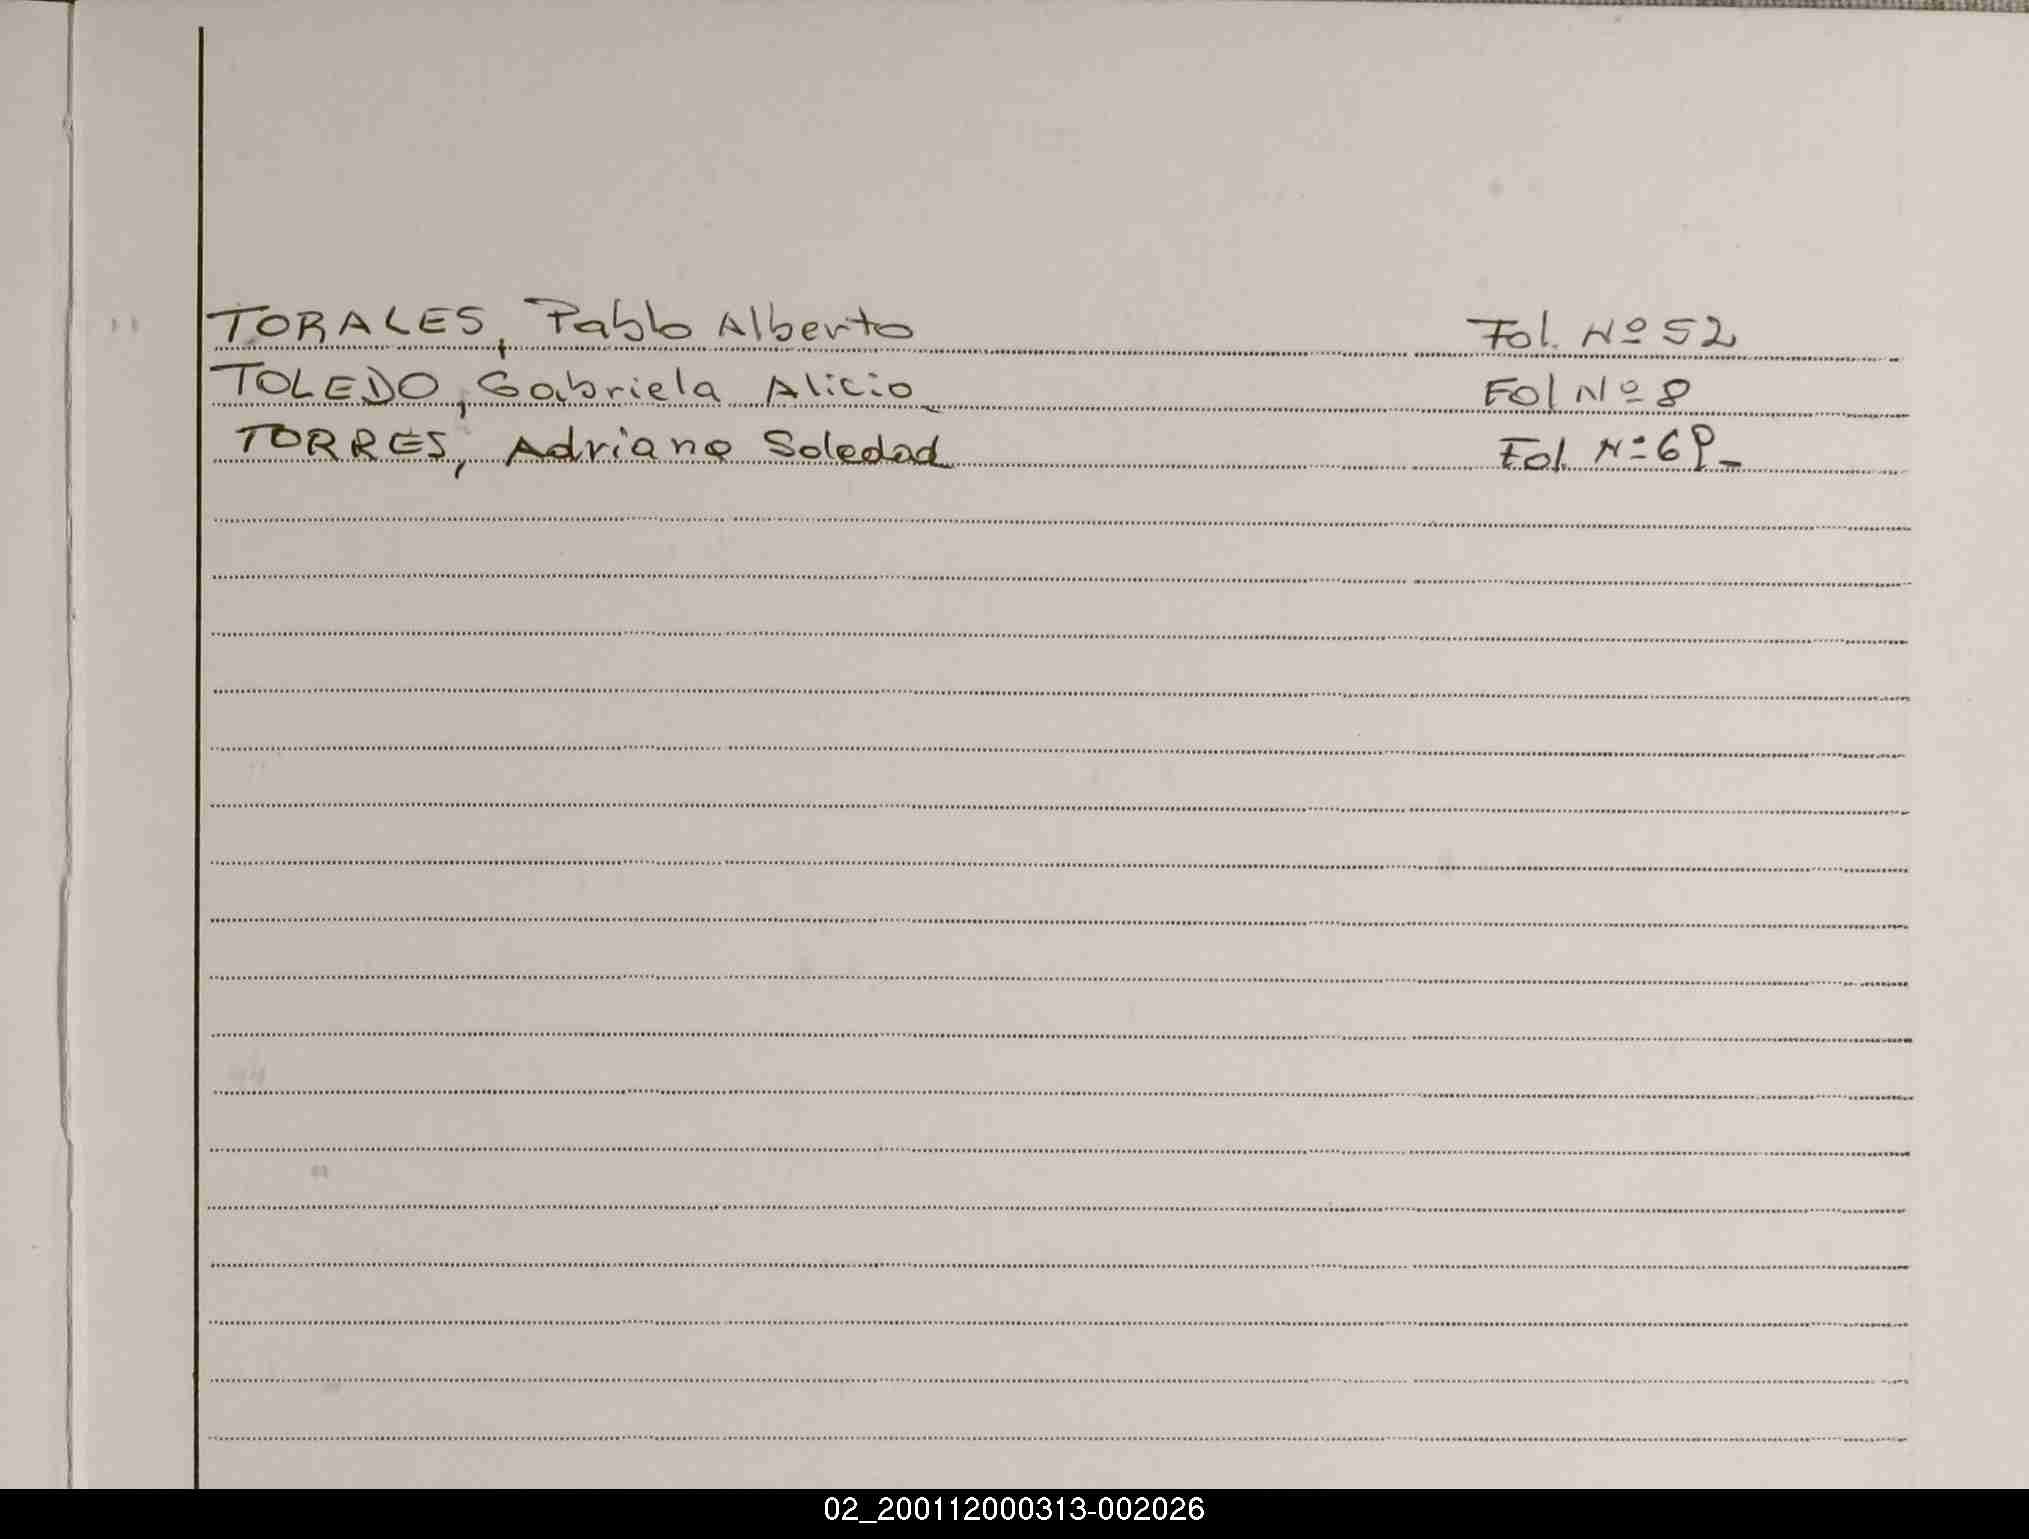 TORALES, Pablo Alberto Fol. Nº 52
TOLEDO, Gabriela Alicia Fol Nº 8
TORRES, Adriana Soledad Fol. Nº 69-
02_200112000313-002026